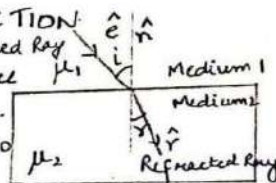 CTION
ted Ray
ê n̂
μ₁ i
Medium 1
Medium2
r r̂
μ₂
Refracted Ray